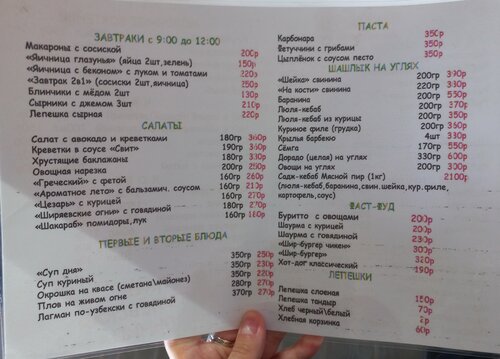 ЗАВТРАКИ с 9:00 до 12:00
Макароны с сосиской 200р
«Яичница глазунья» (яйца 2шт,зелень) 150р
«Яичница с беконом» с луком и томатами 220р
«Завтрак 2в1» (сосиски 2шт,яичница) 250р
Блинчики с мёдом 2шт 130р
Сырники с джемом 3шт 210р
Лепешка сырная 220р
САЛАТЫ
Салат с авокадо и креветками 180гр 360р
Креветки в соусе «Свит» 190гр 360р
Хрустящие баклажаны 180гр 330р
Овощная нарезка 200гр 250р
«Греческий» с фетой 160гр 210р
«Ароматное лето» с бальзамич. соусом 160гр 210р
«Цезарь» с курицей 180гр 270р
«Ширяевские огни» с говядиной 180гр 270р
«Шакараб» помидоры,лук 160гр 180р
ПЕРВЫЕ И ВТОРЫЕ БЛЮДА
«Суп дня» 350гр 250р
Суп куриный 350гр 230р
Окрошка на квасе (сметана\майонез) 350гр 220р
Плов на живом огне 280гр 270р
Лагман по-узбекски с говядиной 370гр 270р
ПАСТА
Карбонара 350р
Фетуччини с грибами 350р
Цыплёнок с соусом песто 350р
ШАШЛЫК НА УГЛЯХ
«Шейка» свинина 200гр 390р
«На кости» свинина 220гр 330р
Баранина 200гр 550р
Люля-кебаб 200гр 370р
Люля-кебаб из курицы 200гр 350р
Куриное филе (грудка) 200гр 360р
Крылья барбекю 4шт 330р
Сёмга 170гр 550р
Дорадо (целая) на углях 330гр 600р
Овощи на углях 200гр 300р
Садж-кебаб Мясной пир (1кг) 2100р
(люля-кебаб,баранина,свин.шейка,кур.филе,
картофель,соус)
ФАСТ-ФУД
Буритто с овощами 200р
Шаурма с курицей 220р
Шаурма с говядиной 220р
«Шир-бургер чикен» 300р
«Шир-бургер» 320р
Хот-дог классический 190р
ЛЕПЕШКИ
Лепешка слоеная 150р
Лепешка тандыр 70р
Хлеб черный\белый 2р
Хлебная корзинка 60р